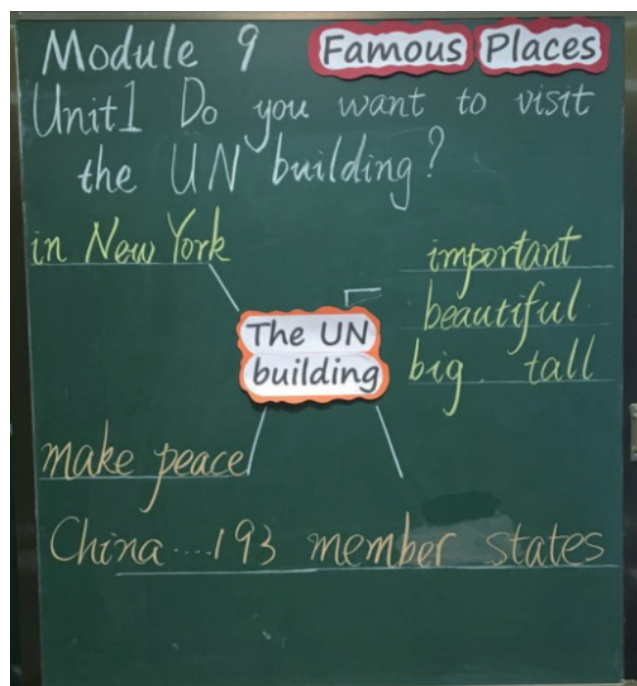 Module 9 Famous Places
Unit1 Do you want to visit
the UN building?
in New York
important
beautiful
big tall
The UN
building
make peace
China....193 member states